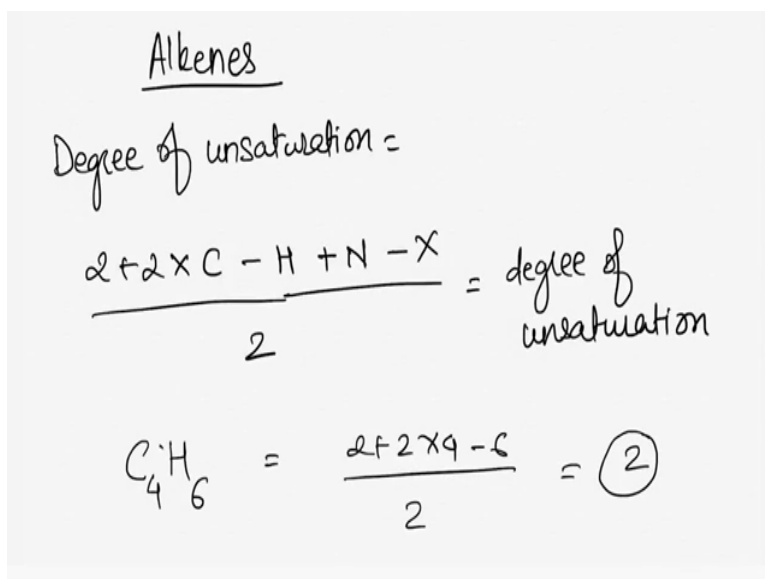 Alkenes
Degree of unsaturation =
2+2×C - H + N - X
2
= degree of
unsaturation
C4H6 = 2+2×4-6
2
= 2